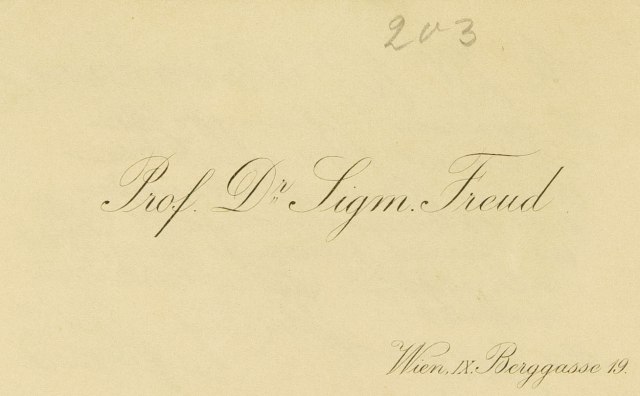 203
Prof. Dr. Sigm. Freud
Wien, IX. Berggasse 19.